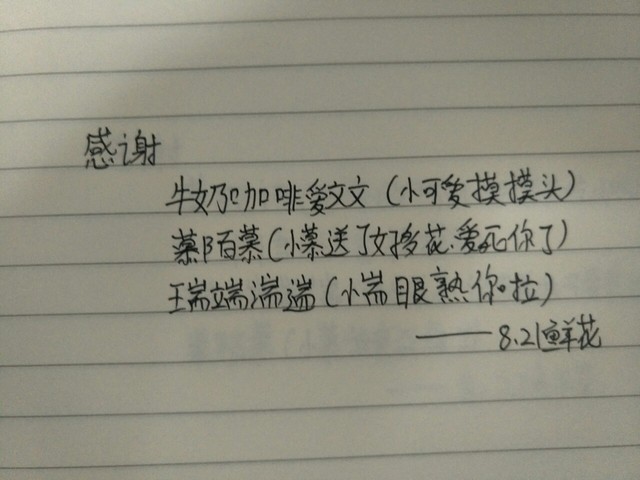 感谢
牛奶咖啡爱文文（小可爱摸摸头）
慕陌慕（小慕送了好多花，爱死你了）
瑞端湍遄（小耑眼熟你啦）
——8.21鲜花